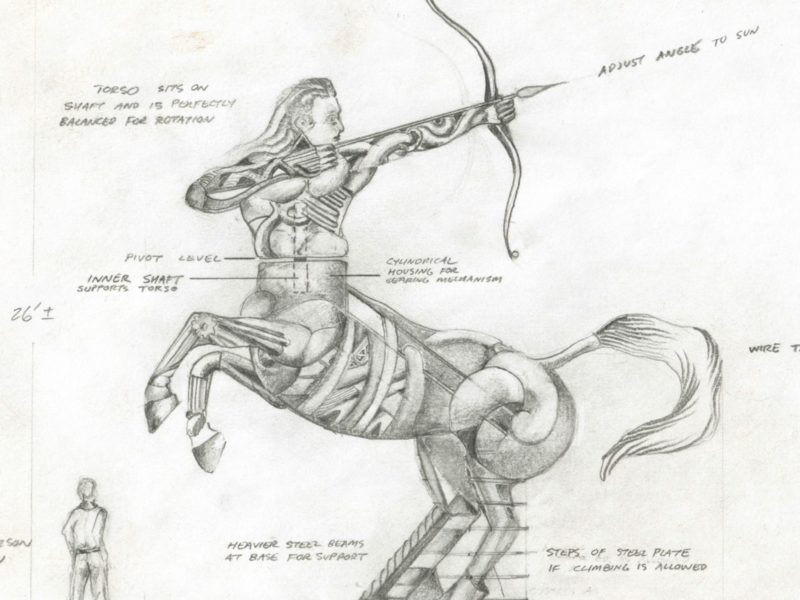 ADJUST ANGLE TO SUN
TORSO SITS ON
SHAFT AND IS PERFECTLY
BALANCED FOR ROTATION
PIVOT LEVEL
INNER SHAFT
SUPPORTS TORSO
CYLINDRICAL
HOUSING FOR
GEARING MECHANISM
26' ±
WIRE T
HEAVIER STEEL BEAMS
AT BASE FOR SUPPORT
STEPS OF STEEL PLATE
IF CLIMBING IS ALLOWED